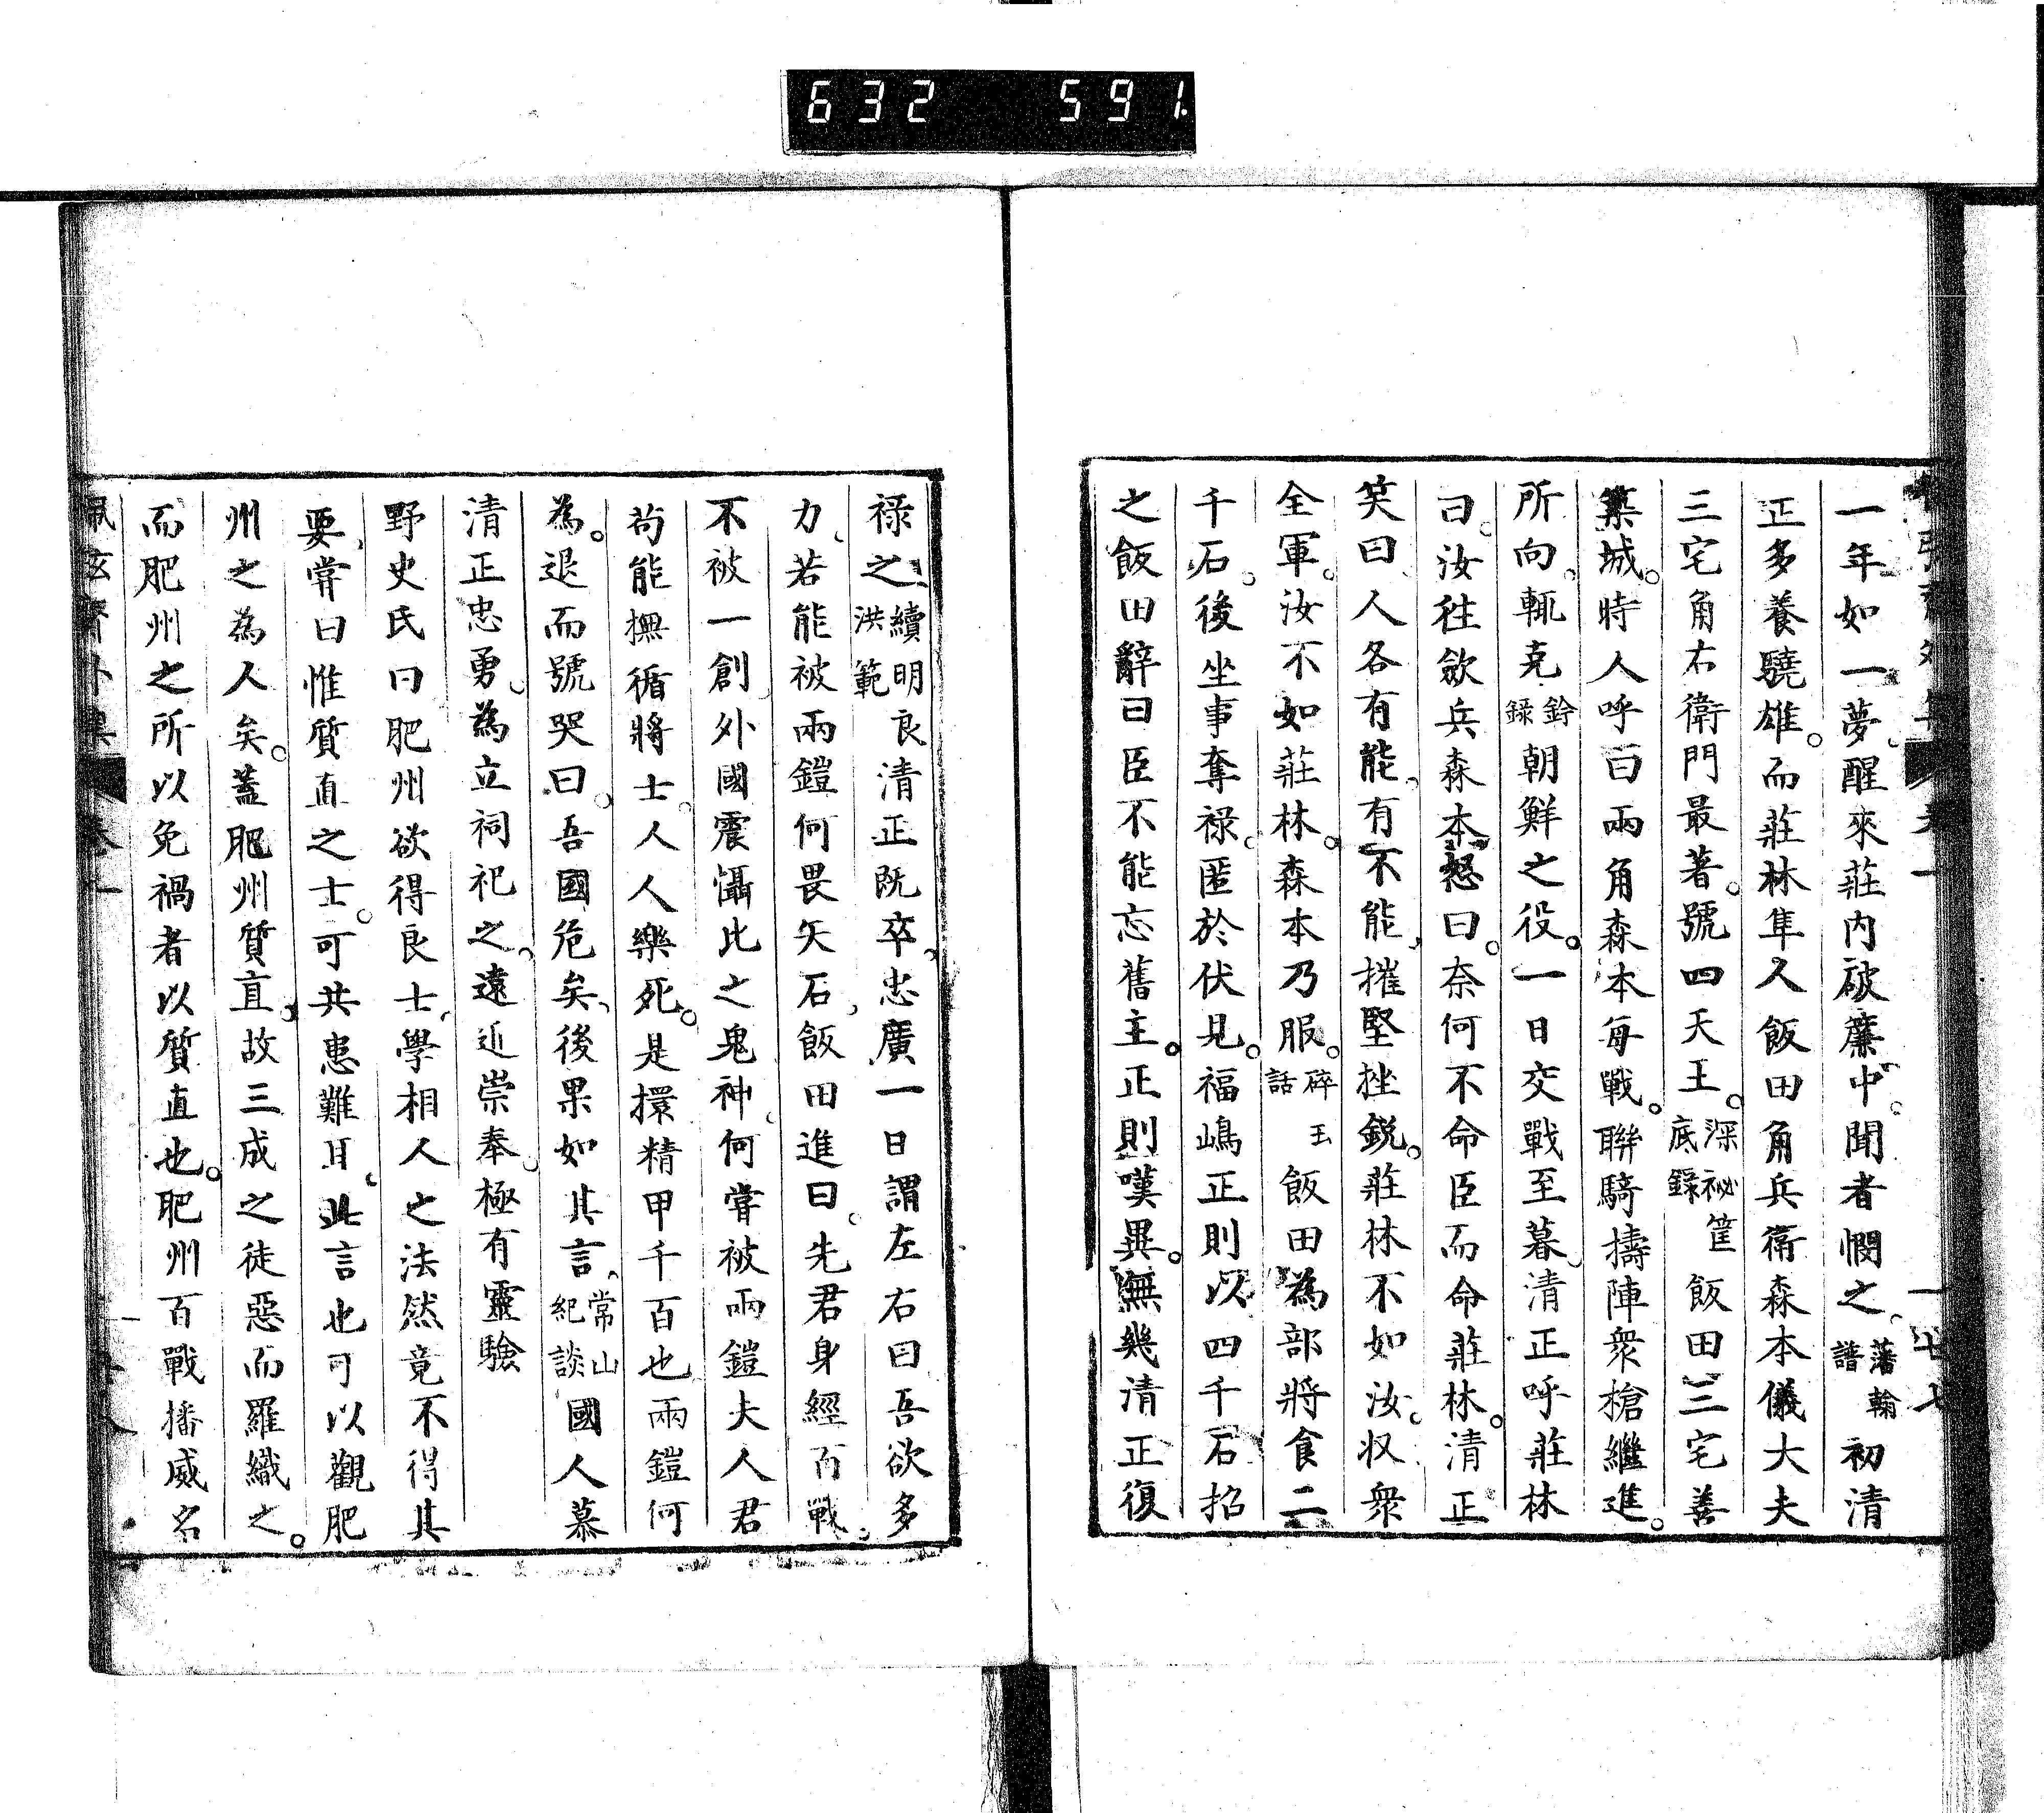 632 591
一年如一夢醒來莊內破簾中聞者憫之藩翰譜初清
正多養驍雄而莊林隼人飯田角兵衛森本儀大夫
三宅角右衛門最著號四天王深祕筐底錄飯田三宅善
築城時人呼曰兩角森本每戰聯騎擣陣衆槍繼進
所向輒克鈐錄朝鮮之役一日交戰至暮清正呼莊林
曰汝往歛兵森本怒曰奈何不命臣而命莊林清正
笑曰人各有能有不能摧堅挫銳莊林不如汝収衆
全軍汝不如莊林森本乃服碎玉話飯田為部將食二
千石後坐事奪祿匿於伏見福嶋正則以四千石招
之飯田辭曰臣不能忘舊主正則嘆異無幾清正復
祿之續明良洪範清正既卒忠廣一日謂左右曰吾欲多
力若能被兩鎧何畏矢石飯田進曰先君身經百戰
不被一創外國震懾比之鬼神何嘗被兩鎧夫人君
苟能撫循將士人人樂死是擐精甲千百也兩鎧何
為退而號哭曰吾國危矣後果如其言常山紀談國人慕
清正忠勇為立祠祀之遠近崇奉極有靈驗
野史氏曰肥州欲得良士學相人之法然竟不得其
要嘗曰惟質直之士可共患難耳此言也可以觀肥
州之為人矣蓋肥州質直故三成之徒惡而羅織之
而肥州之所以免禍者以質直也肥州百戰播威名